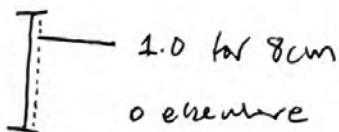 1.0 for 8cm
0 elsewhere